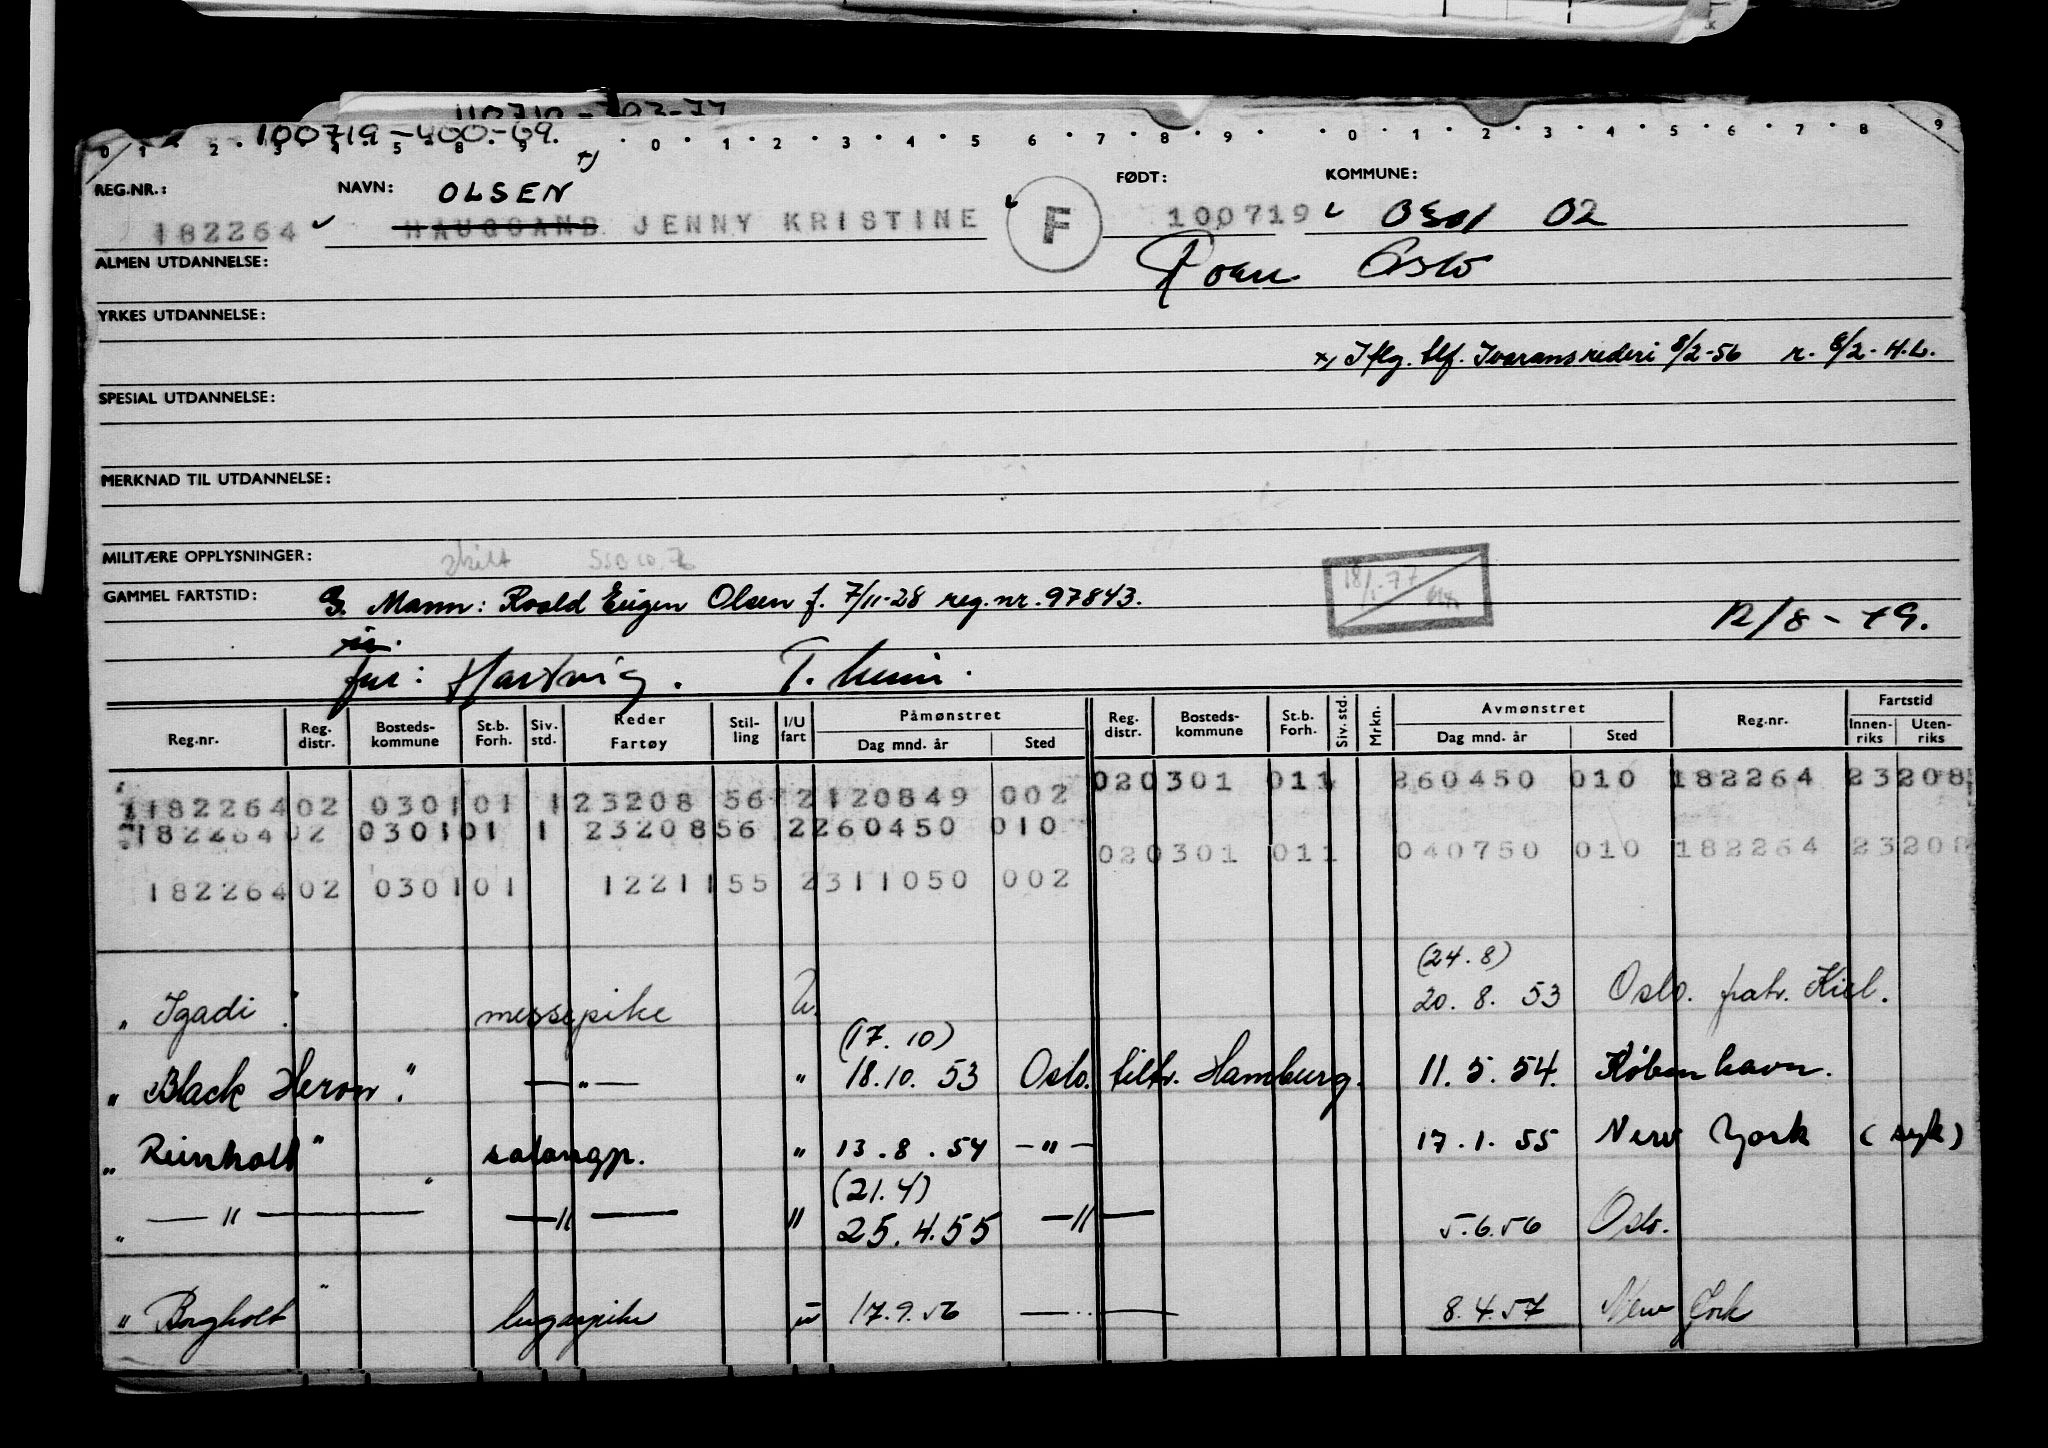 100719-400-09.
0 1 2 3 4 5 8 9 0 1 2 3 4 5 6 7 8 9 0 1 2 3 4 5 6 7 8 9
REG.NR.: NAVN: OLSEN x) FØDT: KOMMUNE:
182264 JENNY KRISTINE F 100719 0301 02
ALMEN UTDANNELSE: Oslo
YRKES UTDANNELSE:
x) Iflg. tlf. Ivarans rederi 8/2-56 r. 8/2-H.L.
SPESIAL UTDANNELSE:
MERKNAD TIL UTDANNELSE:
MILITÆRE OPPLYSNINGER: skilt
18/1-77
GAMMEL FARTSTID: G. Mann: Roald Eugen Olsen f. 7/11-28 reg.nr. 97843.
12/8-49.
far: Hartvig.
Reg.nr. Reg. distr. Bosteds-kommune St.b. Forh. Siv. std. Reder Fartøy Stil-ling I/U fart Påmønstret Dag mnd. år Sted Reg. distr. Bosteds-kommune St.b. Forh. Siv. std. Mrkn. Avmønstret Dag mnd. år Sted Reg.nr. Fartstid Innen-riks Uten-riks
020301 011 260450 010 182264 23208
18226402 030101 123208 56 2120849 002
18226402 030101 1 2320856 2260450 010
020301 011 040750 010 182264 23208
18226402 030101 1221155 2311050 002
(24.8)
"Igadi" messepike U. 20.8. 53 Oslo. fratr. Kiel.
(17.10)
"Black Heron". —"— " 18.10. 53 Oslo. tiltr. Hamburg. 11. 5. 54. København.
"Reinholt" salongp. " 13.8.54 —"— 17.1.55 New York (syk)
(21.4)
" —"— " —"— " 25.4.55 —"— 5.6.56 Oslo.
"Borgholt" lugarpike u 17.9.56 —"— 8.4.57 New York